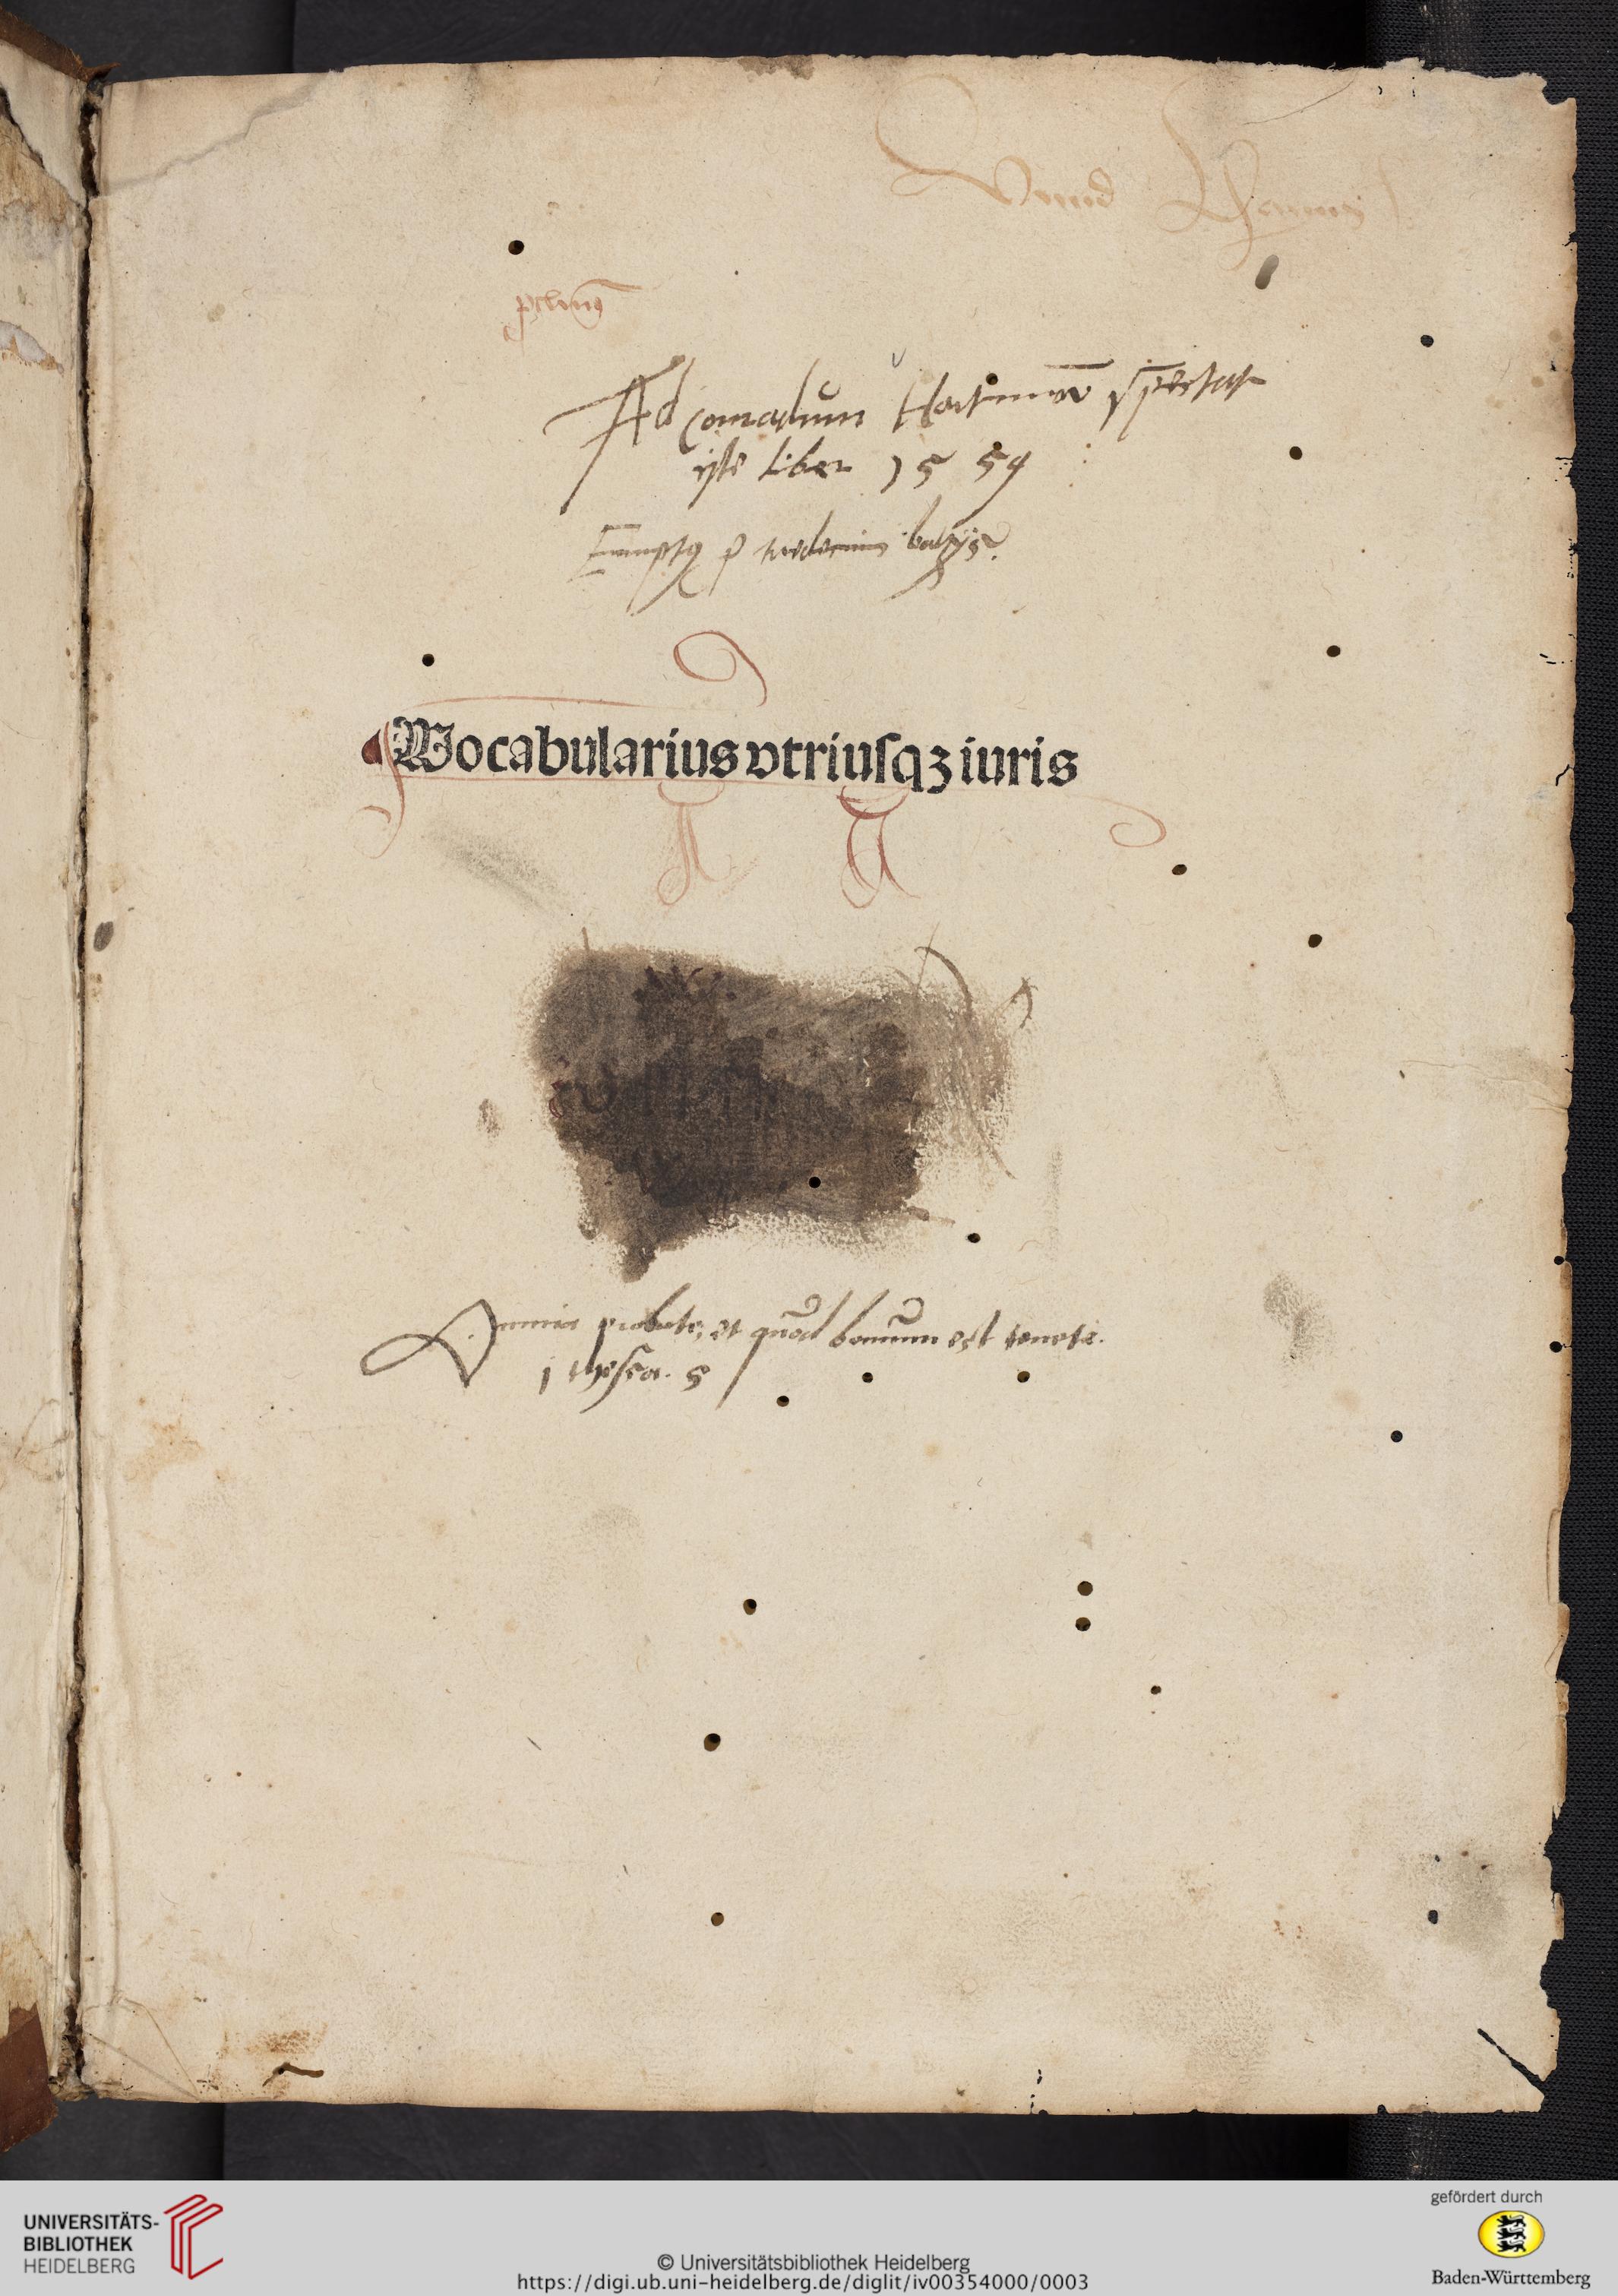 Vnnd
Ad Conradum Hartman̄ spectat
iste liber 1554
Emptq p tredecim batzijs.
Wocabularius vtriusqꝫ iuris
Omnia probate, et quod bonum est tenete.
1 thessa. 5
UNIVERSITÄTS-
BIBLIOTHEK
HEIDELBERG
© Universitätsbibliothek Heidelberg
https://digi.ub.uni-heidelberg.de/diglit/iv00354000/0003
gefördert durch
Baden-Württemberg